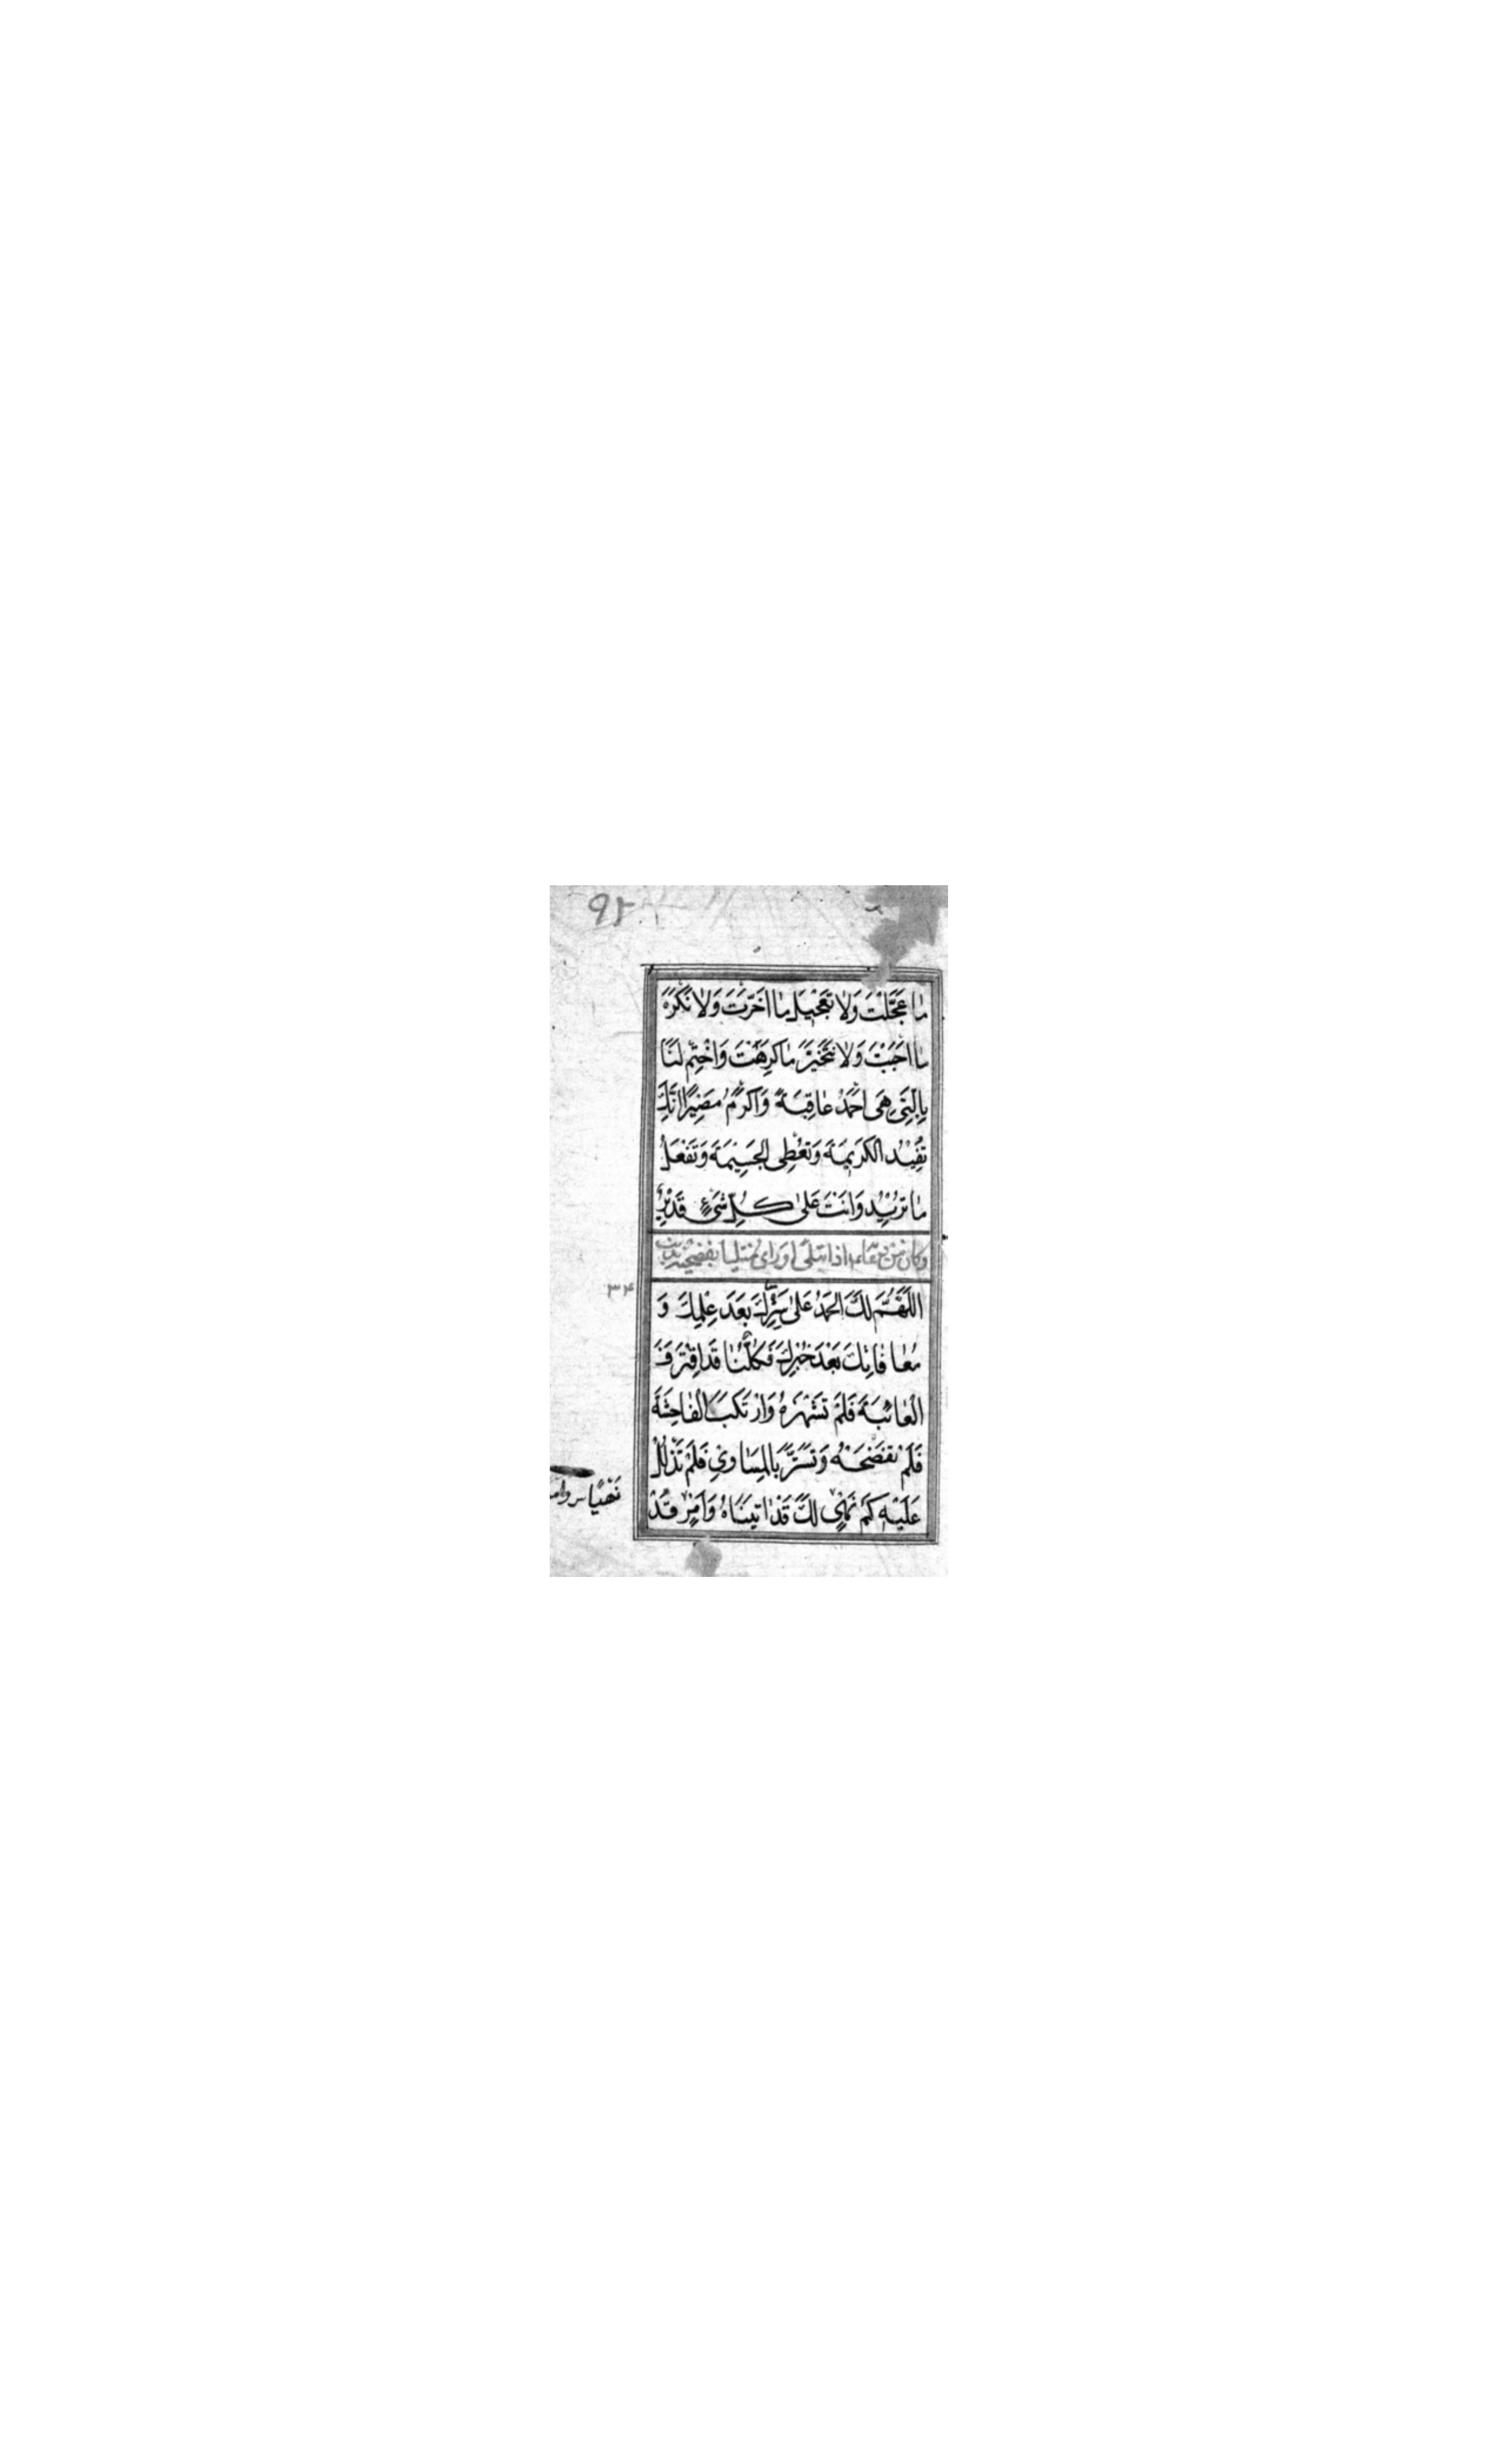 ۹۲
مَا عَجَّلْتَ وَلَا تَعْجِيلَ مَا اَخَّرْتَ وَلَا نَكْرَهَ
مَا اَحْبَبْتَ وَلَا نَتَخَيَّرَ مَا كَرِهْتَ وَاخْتِمْ لَنَا
بِالَّتِي هِيَ اَحْمَدُ عَاقِبَةً وَاَكْرَمُ مَصِيرًا اِنَّكَ
تُفِيدُ الْكَرِيمَةَ وَتُعْطِى الْجَسِيمَةَ وَتَفْعَلُ
مَا تُرِيدُ وَاَنْتَ عَلَىٰ كُلِّ شَيْءٍ قَدِيرٌ
وَكَانَ مِنْ دُعَائِهِ اِذَا ابْتُلِىَ اَوْ رَاى مُبْتَلِيًا بِفَضِيحَةٍ بِذَنْبٍ
۳۴
اَللّٰهُمَّ لَكَ الْحَمْدُ عَلَىٰ سِتْرِكَ بَعْدَ عِلْمِكَ وَ
مُعَافَاتِكَ بَعْدَ خُبْرِكَ فَكُلُّنَا قَدِ اقْتَرَفَ
الْعَائِبَةَ فَلَمْ تَشْهَرْهُ وَارْتَكَبَ الْفَاحِشَةَ
فَلَمْ تَفْضَحْهُ وَتَسَتَّرَ بِالْمَسَاوِي فَلَمْ تَدْلُلْ
عَلَيْهِ كَمْ نَهْيٍ لَكَ قَدْ اَتَيْنَاهُ وَاَمْرٍ قَدْ
نَهْيًا س